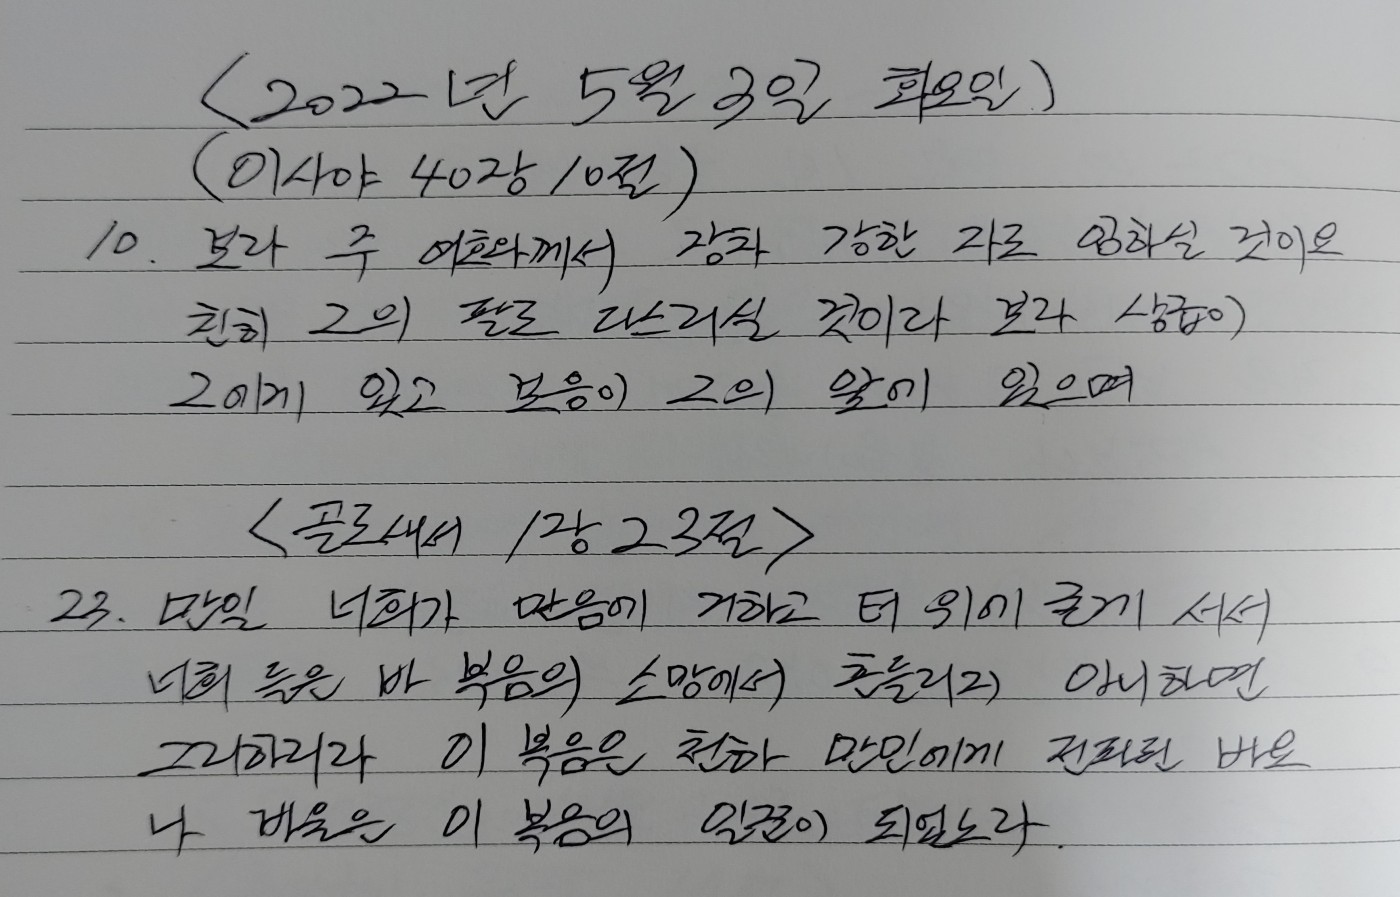 <2022년 5월 3일 화요일>
(이사야 40장 10절)
10. 보라 주 여호와께서 장차 강한 자로 임하실 것이요
친히 그의 팔로 다스리실 것이라 보라 상급이
그에게 있고 보응이 그의 앞에 있으며
<골로새서 1장 23절>
23. 만일 너희가 믿음에 거하고 터 위에 굳게 서서
너희 들은 바 복음의 소망에서 흔들리지 아니하면
그리하리라 이 복음은 천하 만민에게 전파된 바요
나 바울은 이 복음의 일꾼이 되었노라.